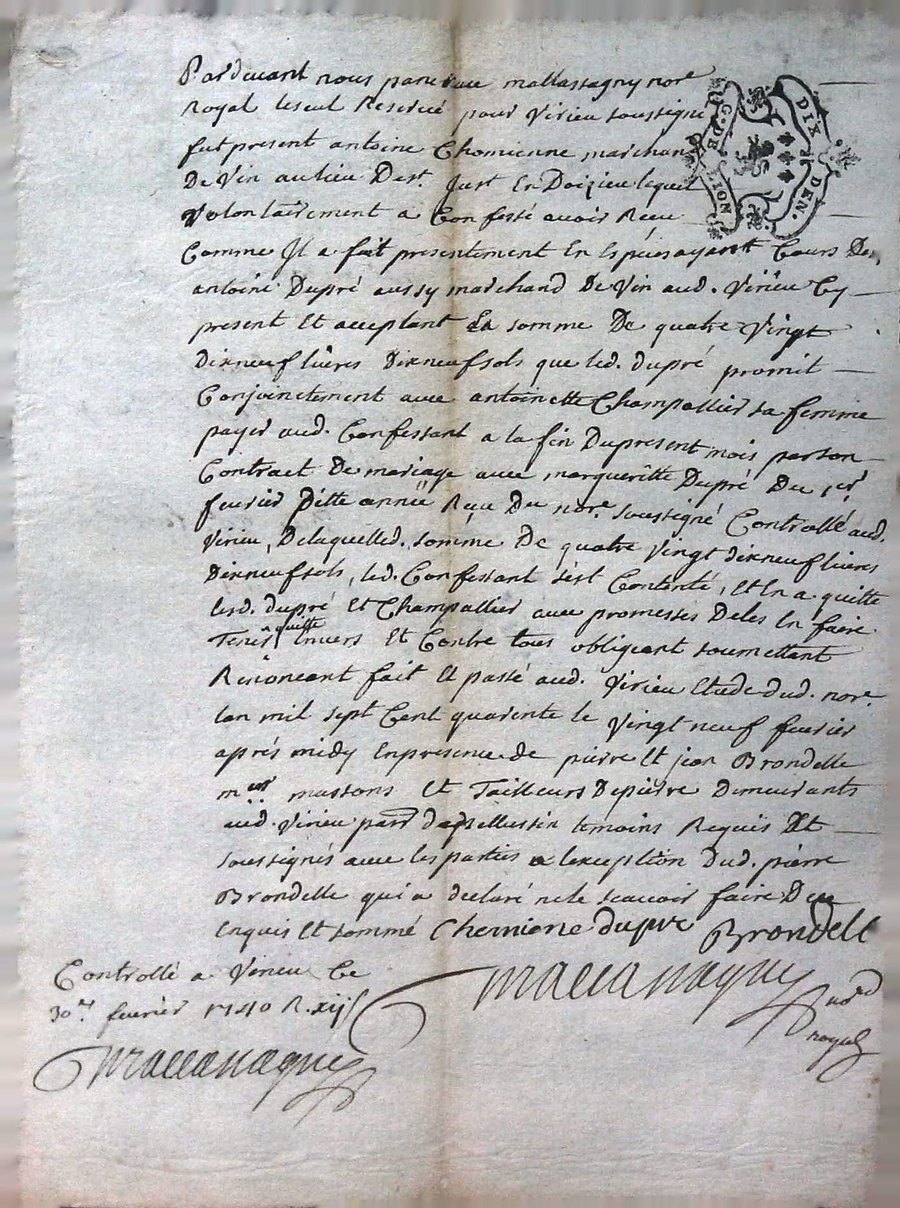 Pardevant nous mallassagny nore
Royal Reservé pour Virieu soussigné
fut present antoine Chomienne marchand
De Vin au lieu De st. Just En Doizieu lequel
Volontairement a Confessé avoir Reçu
Comme Il a fait presentement En Espéces ayant Cours De
antoine Dupré aussy marchand De Vin aud. Virieu Cy
present Et acceptant La somme De quatre Vingt
Dixneuf livres Dixneuf sols que led. dupré promit
Conjoinctement avec antoinette Champallier sa femme
payer aud. Confessant a la fin Du present mois par son
Contract De mariage avec margueritte Dupré Du 1er
fevrier Ditte année Reçu Du nore. soussigné Controllé aud.
Virieu, De laquelled. somme De quatre Vingt dixneuf livres
Dixneuf sols, led. Confessant s'est Contenté, Et En a quitté
lesd. dupré Et Champallier avec promesses De les En faire
Tenir quitte Envers Et Contre tous obligeant soumettant
Renonceant fait Et passé aud. Virieu Etude dud. nore.
lan mil sept Cent quarente le Vingt neuf fevrier
aprés midy En presence de pierre Et jean Brondelle
mes massons Et Tailleurs De pierre Demeurants
aud. Virieu parr de pellussin temoins Requis Et
soussignés avec les parties a lexception Dud. pierre
Brondelle qui a declaré ne le scavoir faire De ce
Enquis Et sommé Chomiene dupre Brondelle
G. DE LION
DIX DEN.
Controllé a Virieu Ce
30me. fevrier 1740 R. xijs
royal